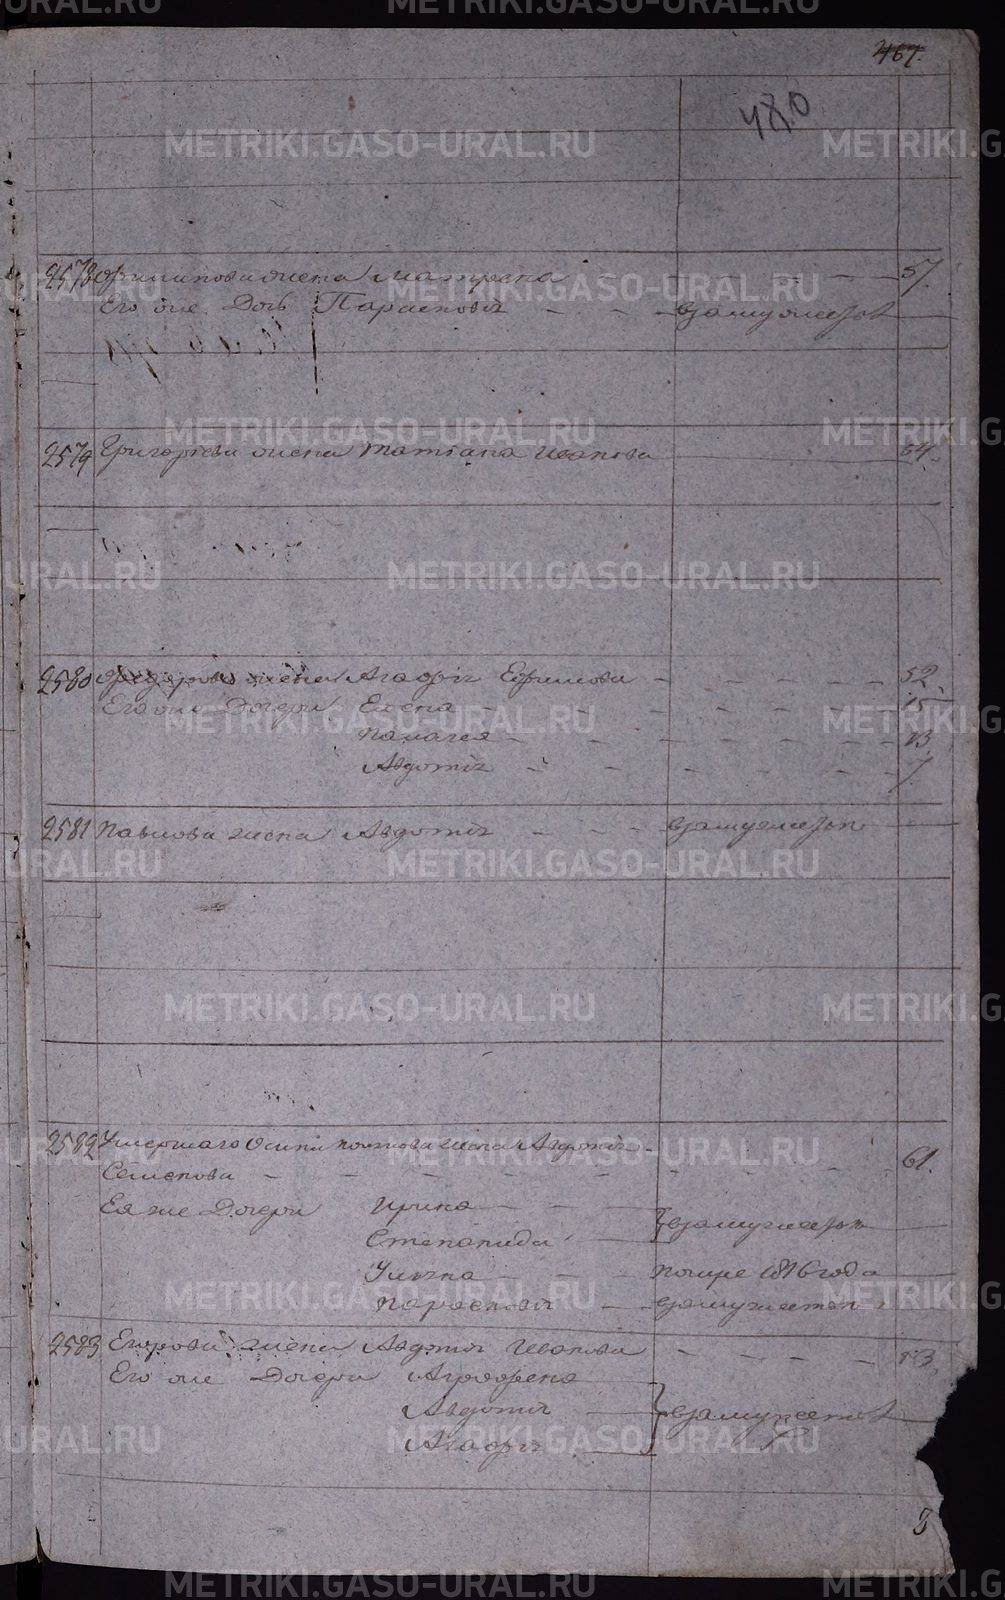 467.
480
2578 Филипова жена Матрена 57.
Его же Дочь Парасковья взамужестве
2579 Григорьева жена Татьяна Иванова 64.
2580 Федорова жена Агафья Ефимова 52.
Его же Дочери Елена 15
Палагея 13
Авдотья 7.
2581 Павлова жена Авдотья взамужестве
2582 Умершаго Осипа жена Авдотья 61.
Семенова
Ея же Дочери Ирина
Степанида взамужестве
Ульяна помре 1816 года
Парасковья взамужестве
2583 Егорова жена Авдотья Иванова 53
Его же Дочери Аграфена
Авдотья взамужестве
Агафья
METRIKI.GASO-URAL.RU